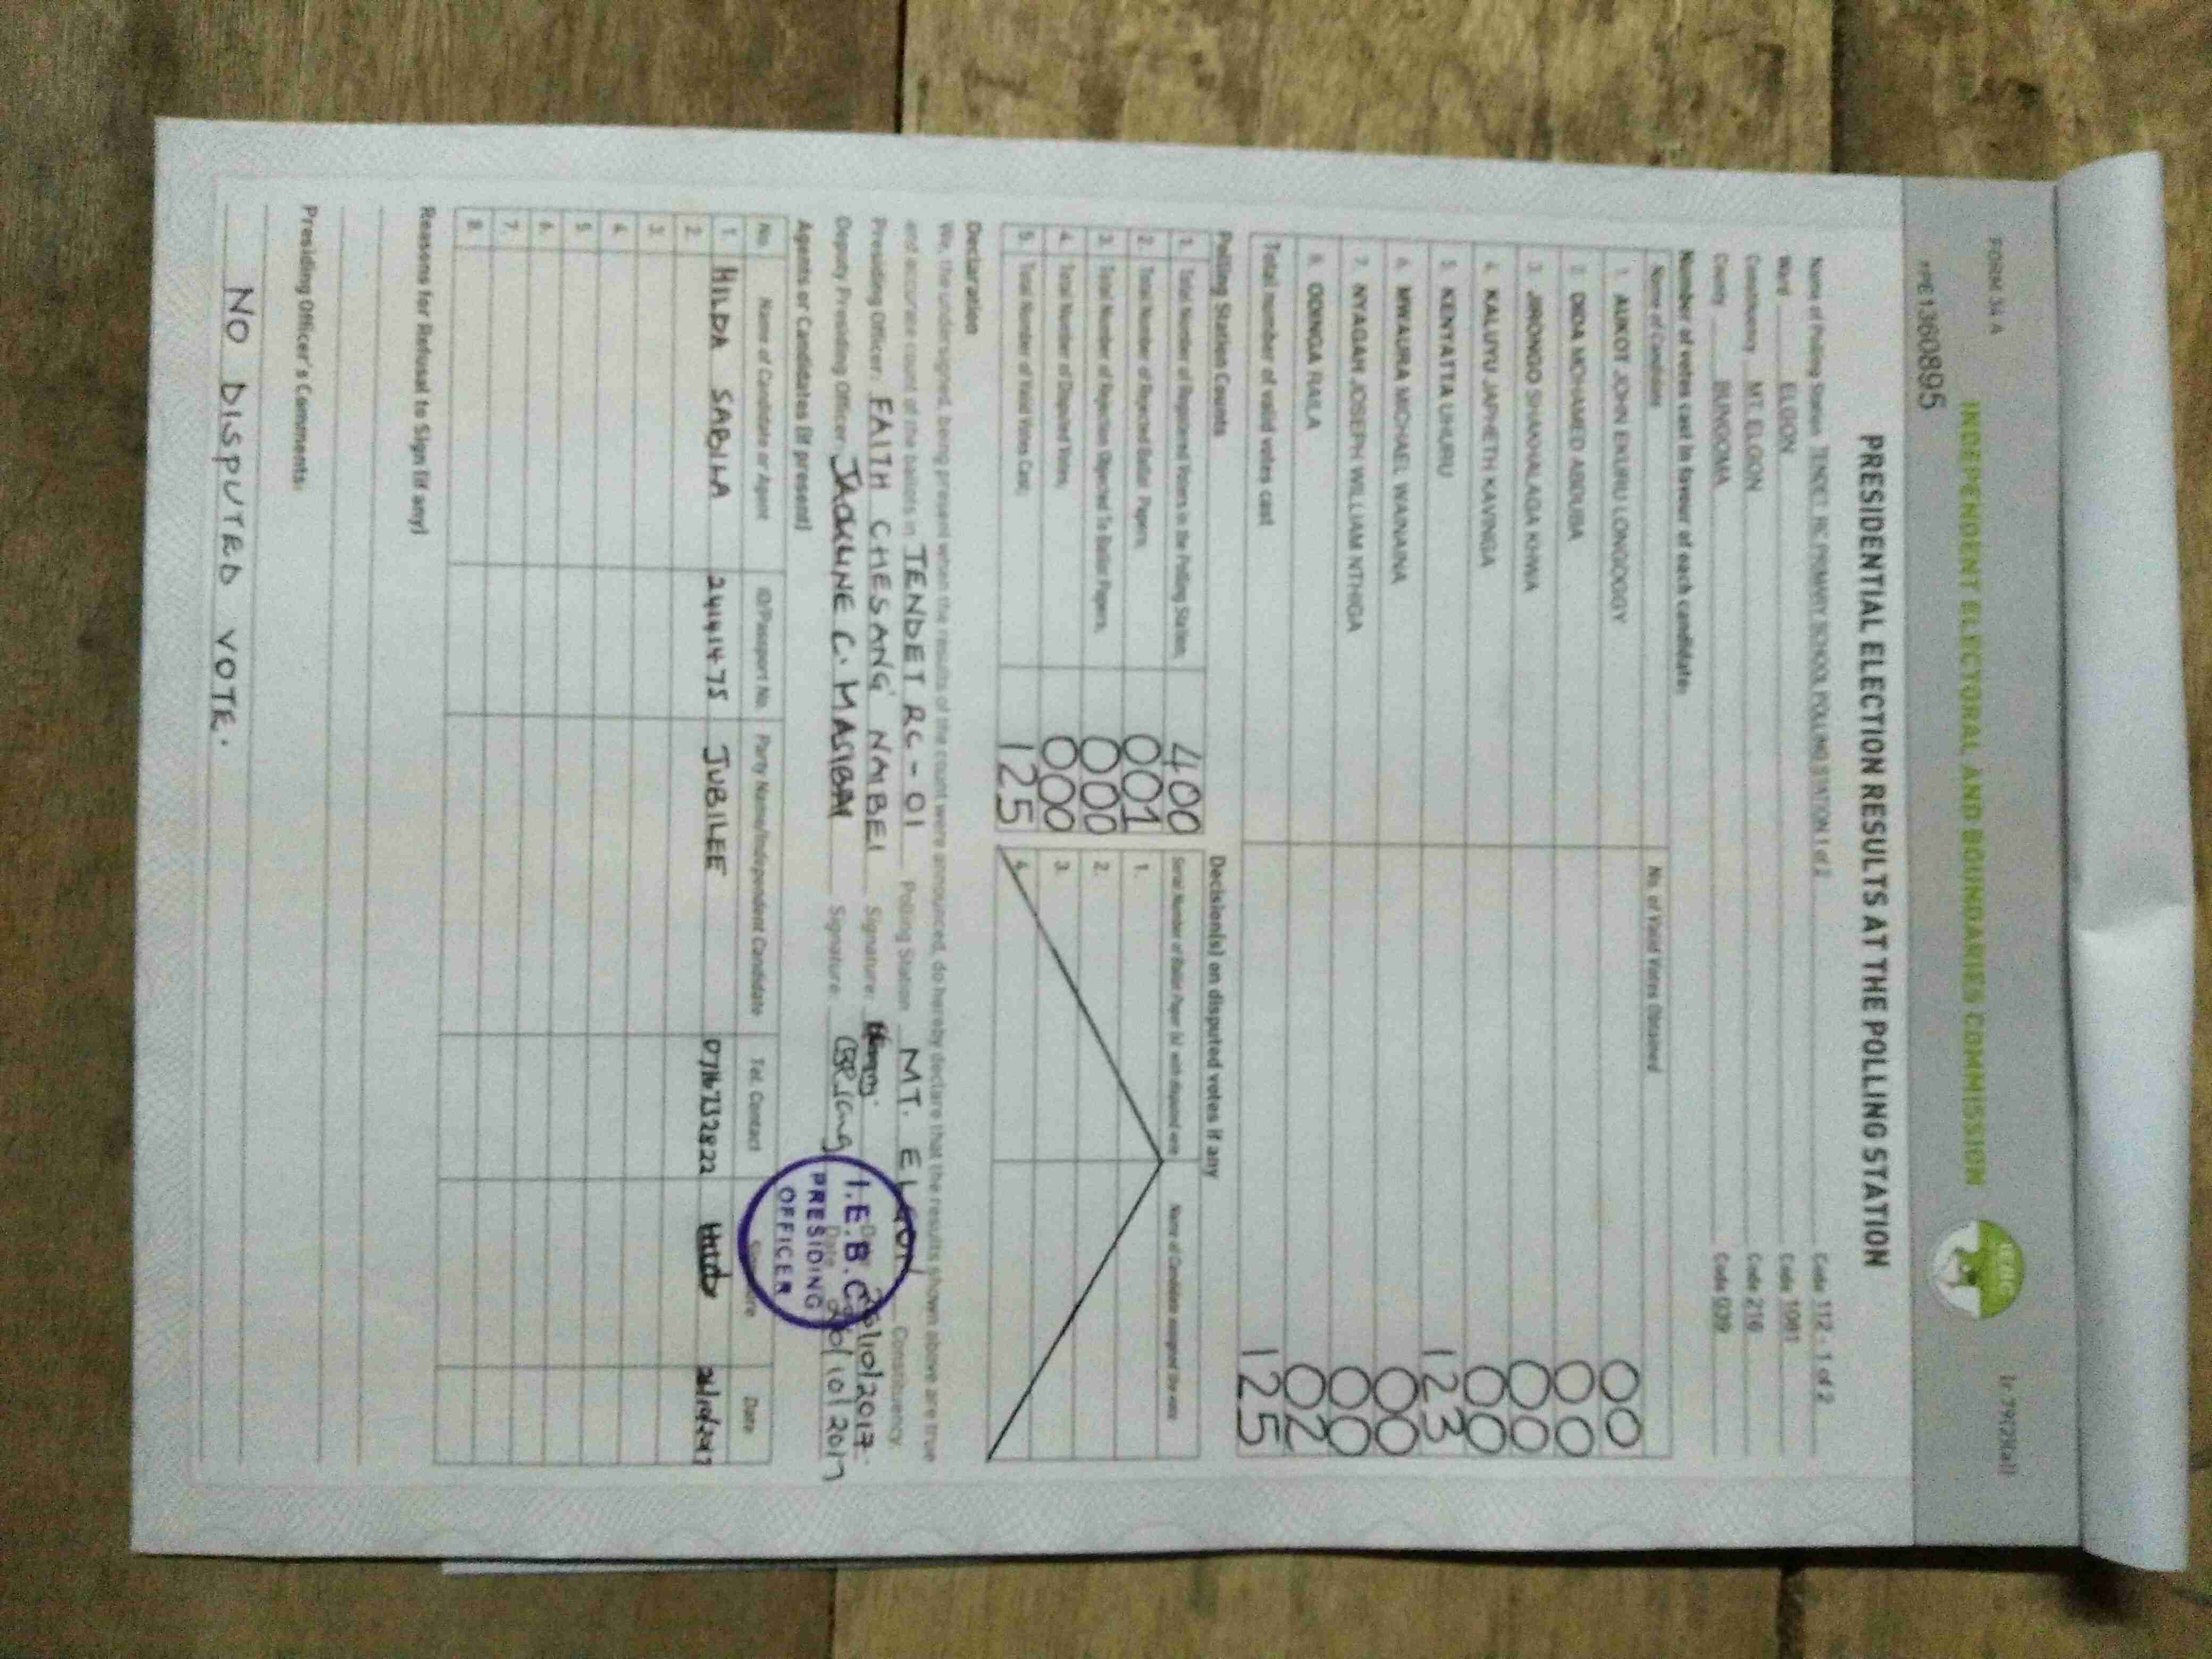 FORM 34 A
1r 792(2)(a)
INDEPENDENT ELECTORAL AND BOUNDARIES COMMISSION
IEBC
1360895
PRESIDENTIAL ELECTION RESULTS AT THE POLLING STATION
Name of Polling Station TENDET RC PRIMARY SCHOOL POLLING STATION 1 of 2 Code 112 - 1 of 2
Ward ELGON Code 1081
Constituency MT. ELGON Code 216
County BUNGOMA Code 039
Number of votes cast in favour of each candidate:
Name of Candidate No. of Valid Votes Obtained
1. AUKOT JOHN EKURU LONGOGGY 00
2. DIDA MOHAMED ABDUBA 00
3. JIRONGO SHAKHALAGA KHWA 00
4. KALUYU JAPHETH KAVINGA 00
5. KENYATTA UHURU 123
6. MWAURA MICHAEL WAINAINA 00
7. NYAGAH JOSEPH WILLIAM NTHIGA 00
8. ODINGA RAILA 02
Total number of valid votes cast 125
Polling Station Counts
1. Total Number of Registered Voters in the Polling Station; 400
2. Total Number of Rejected Ballot Papers; 001
3. Total Number of Rejection Objected To Ballot Papers; 000
4. Total Number of Disputed Votes; 000
5. Total Number of Valid Votes Cast; 125
Decision(s) on disputed votes if any
Serial Number of Ballot Paper (s) with disputed vote Name of Candidate assigned the vote
1.
2.
3.
4.
Declaration
We, the undersigned, being present when the results of the count were announced, do hereby declare that the results shown above are true
and accurate count of the ballots in TENDET RC - 01 Polling Station MT. ELGON Constituency
Presiding Officer: FAITH CHESANG' NAIBEI Signature: 26/10/2017
Deputy Presiding Officer: JACKLINE C. Signature: Date 26/10/2017
I.E.B.C
PRESIDING
OFFICER
Agents or Candidates (if present)
No. Name of Candidate or Agent ID/Passport No. Party Name/Independent Candidate Tel. Contact Signature Date
1. HILDA SABILA 24141475 JUBILEE 0716732822
2.
3.
4.
5.
6.
7.
8.
Reasons for Refusal to Sign (if any)
Presiding Officer's Comments:
NO DISPUTED VOTE.